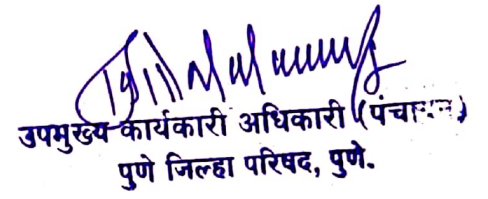 उपमुख्य कार्यकारी अधिकारी
पुणे जिल्हा परिषद, पुणे.